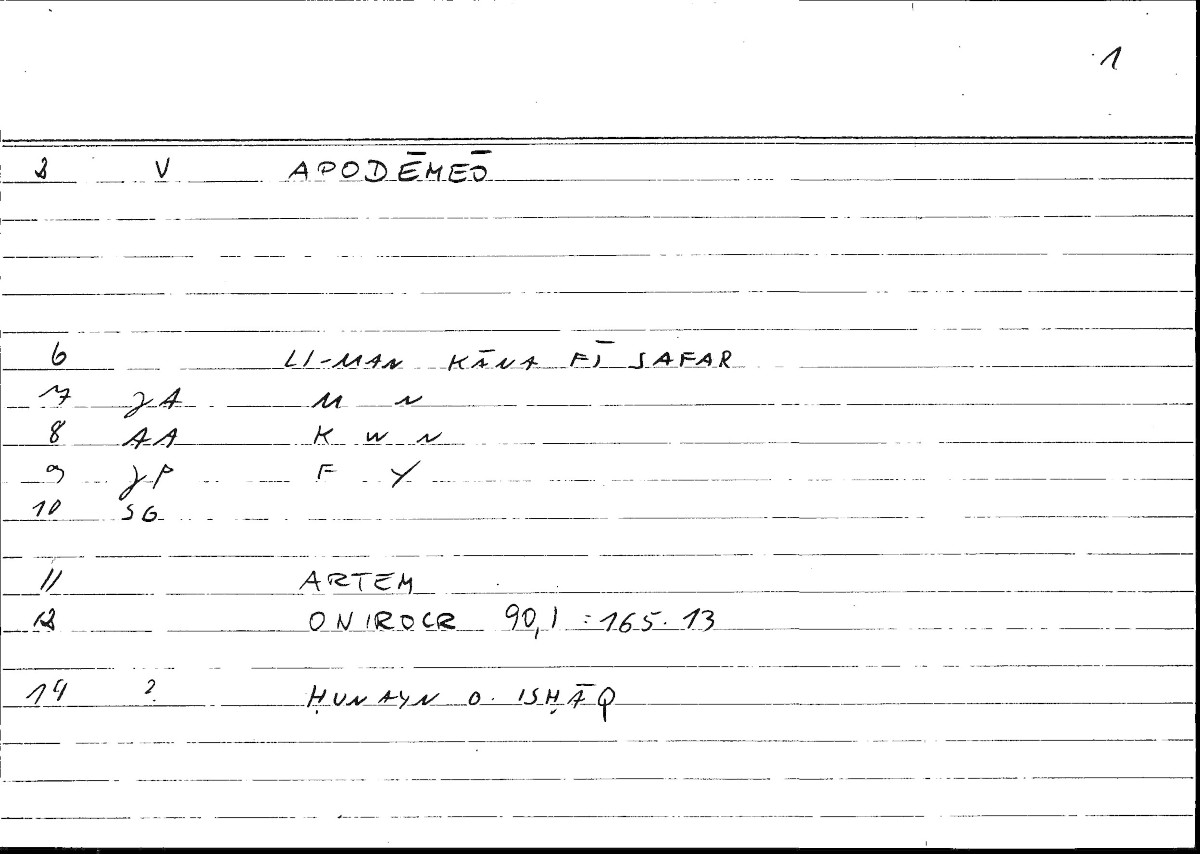 1
2 V APODĒMEŌ
6 LI-MAN KĀNA FĪ SAFAR
7 JA M N
8 AA K W N
9 JP F Y
10 SG
11 ARTEM
12 ONIROCR 90,1 = 165.13
14 ? ḤUNAYN O. ISḤĀQ